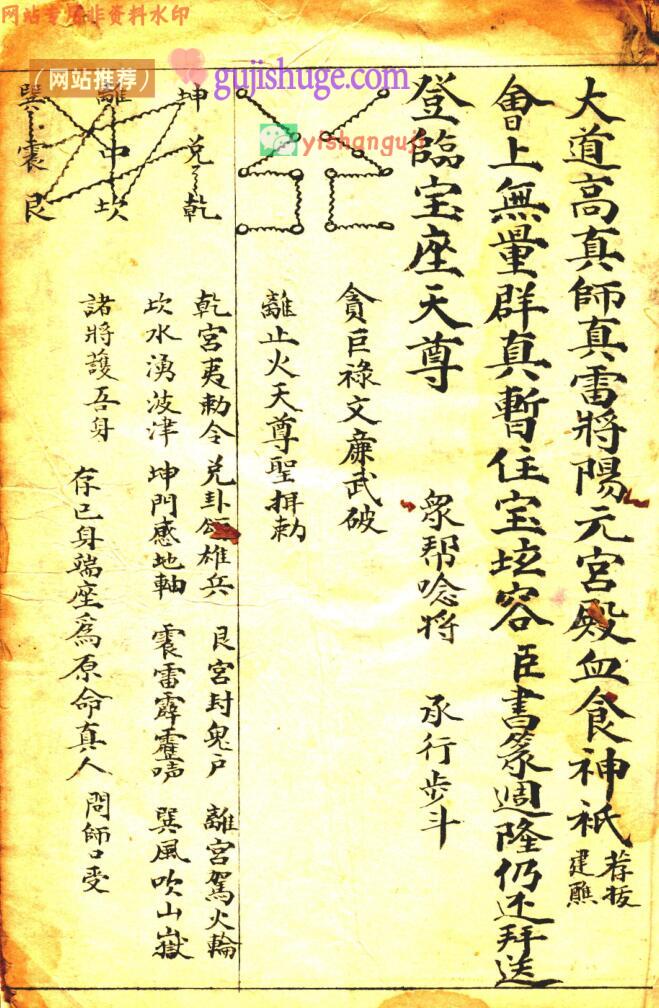 网站专属非资料水印
（网站推荐）
gujishuge.com
yishanguji
大道高真師真雷將陽元宮殿血食神祇 荐拔 建醮
會上無量群真暫住宝坛容臣書篆週隆仍还拜送
登臨宝座天尊 眾帮唸將 承行步斗
貪巨祿文廉武破
離止火天尊聖揖勅
坤 離 巽
兌 中 震
乾 坎 艮
乾宮夷勅令 兌卦領雄兵 艮宮封鬼户 離宮駕火輪
坎水湧波津 坤門感地軸 震雷霹靂声 巽風吹山嶽
諸將護吾身 存已身端座為原命真人 問師口受